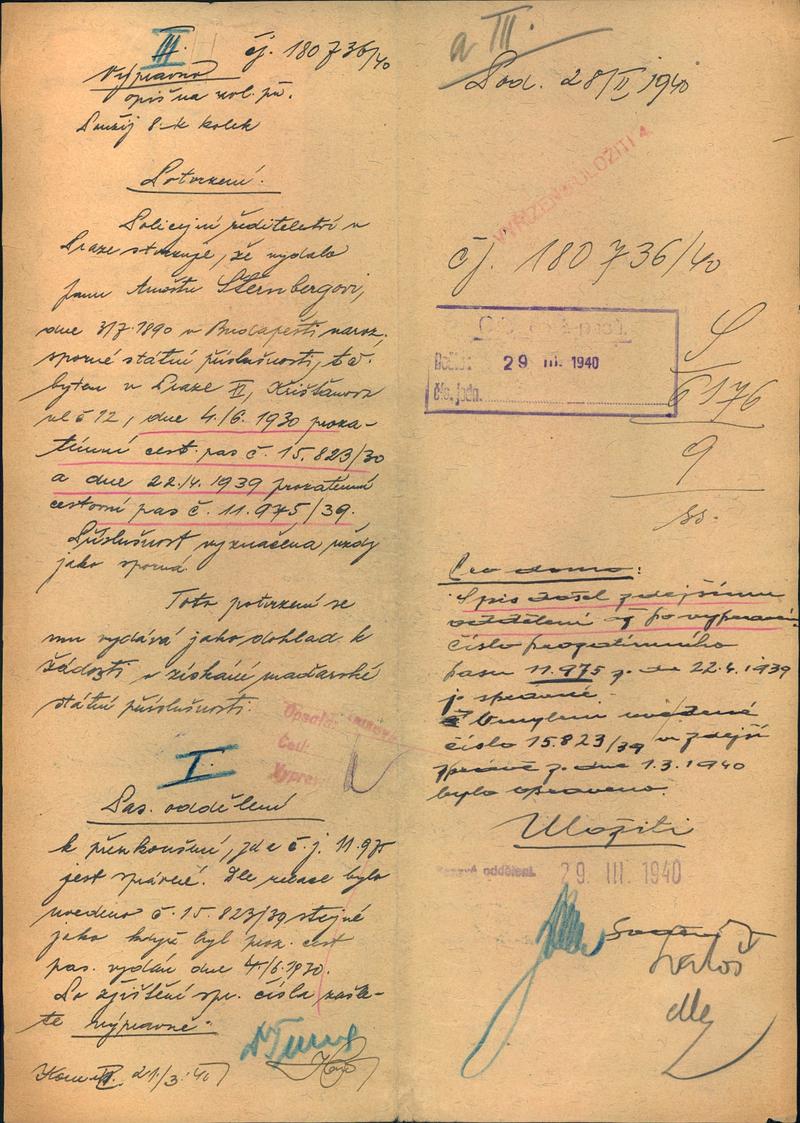 III. čj. 180736/40
Výpravně
opiš na
8 k kolek
Potvrzení.
Policejní ředitelství v
Praze stvrzuje, že vydalo
panu Arnoštu Sternbergovi,
dne 3/7 1890 v Budapešti naroz.
sporné státní příslušnosti, t. č.
bytem v Praze II,
ul č 12, dne 4./6. 1930 proza-
tímní cest. pas č. 15.823/30
a dne 22./4. 1939 prozatímní
cestovní pas č. 11.975/39.
Příslušnost vyznačena vždy
jako sporná.
Toto potvrzení se
mu vydává jako doklad k
žádosti o získání maďarské
státní příslušnosti.
I.
Pas. oddělení
k přezkoušení, zda č. j. 11.975
jest správné. Dle relace bylo
uvedeno č. 15.823/39 stejně
jako když byl proz. cest
pas. vydán dne 4./6. 1930.
Po zjištění spr. čísla zašle-
te výpravně.
21/3. 40
a III.
Pod. 28/II 1940
VYŘÍZENO ULOŽITI
čj. 180736/40
Došlo: 29 III. 1940
čís. jedn.
S
6176
9
Pro domo:
Spis došel zdejšímu
oddělení až po vypravení
číslo prozatímního
pasu 11.975 z. dne 22.4.1939
je správné.
Omylem uvedené
číslo 15.823/39 v zdejší
zprávě z. dne 1.3.1940
bylo opraveno.
Uložiti
oddělení. 29. III. 1940